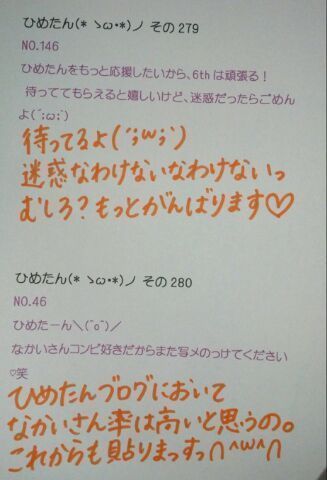 ひめたん(* ゝω・*)ノ その279
NO.146
ひめたんをもっと応援したいから、6thは頑張る！
待っててもらえると嬉しいけど、迷惑だったらごめん
よ(´;ω;`)
待ってるよ(´;ω;`)
迷惑なわけないなわけないっ
むしろ?もっとがんばります♡
ひめたん(* ゝω・*)ノ その280
NO.46
ひめたーん＼(^o^)／
なかいさんコンビ好きだからまた写メのっけてください
♡笑
ひめたんブログにおいて
なかいさん率は高いと思うの。
これからも貼りまっすっ∩^ω^∩